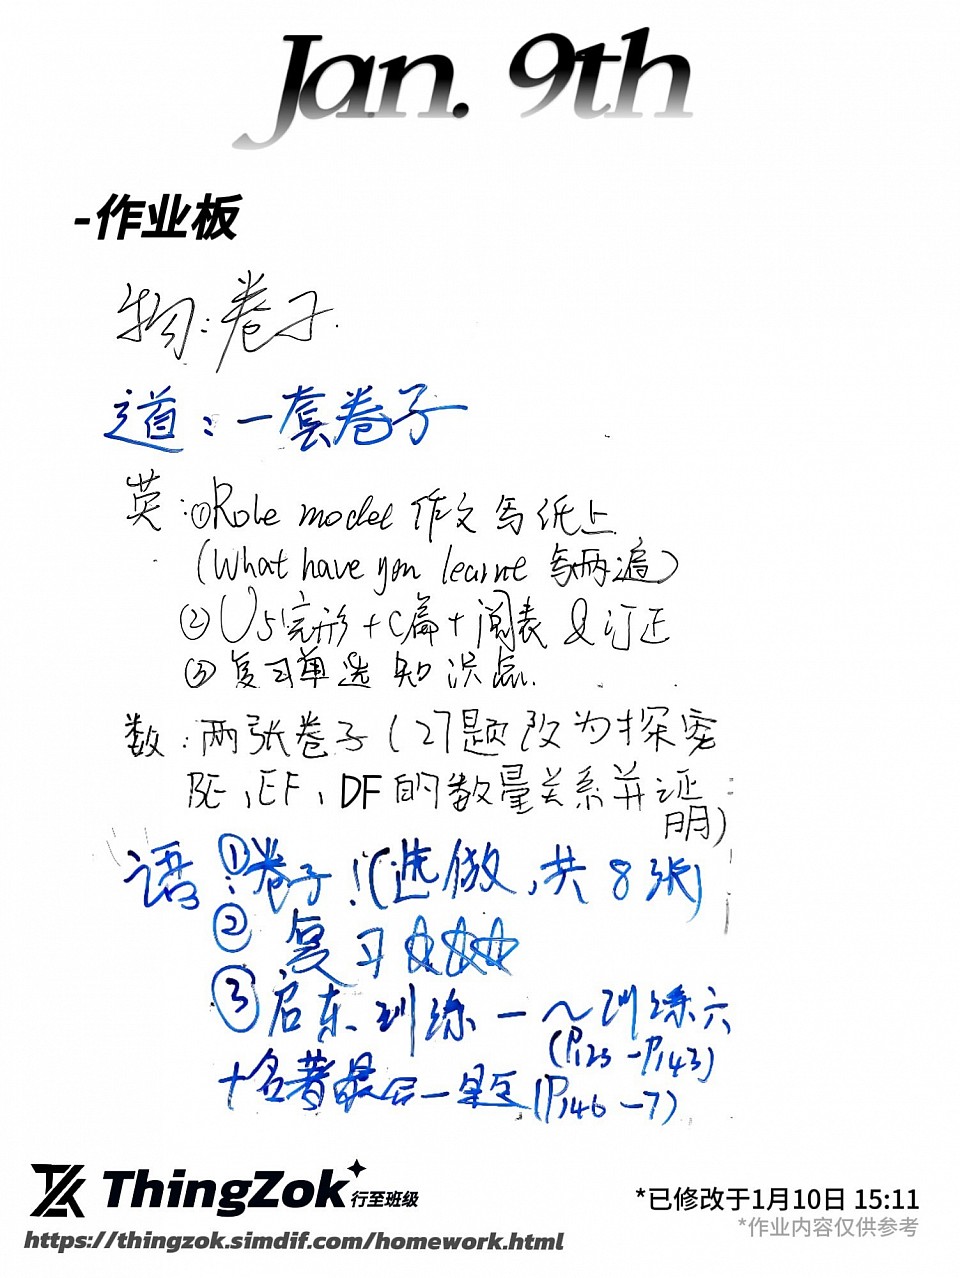 Jan. 9th
-作业板
物:卷子.
道:一套卷子
英:①Role model 作文写纸上
(What have you learnt 写两遍)
②U5完形+C篇+阅表 & 订正
③复习单选知识点.
数:两张卷子(27题改为探究
BE,EF,DF的数量关系并证
明)
语:①卷子!(选做,共8张)
②复习☆☆☆
③启东训练一~训练六
(P123-P143)
+名著最后一题(P146-7)
ThingZok 行至班级
*已修改于1月10日 15:11
*作业内容仅供参考
https://thingzok.simdif.com/homework.html